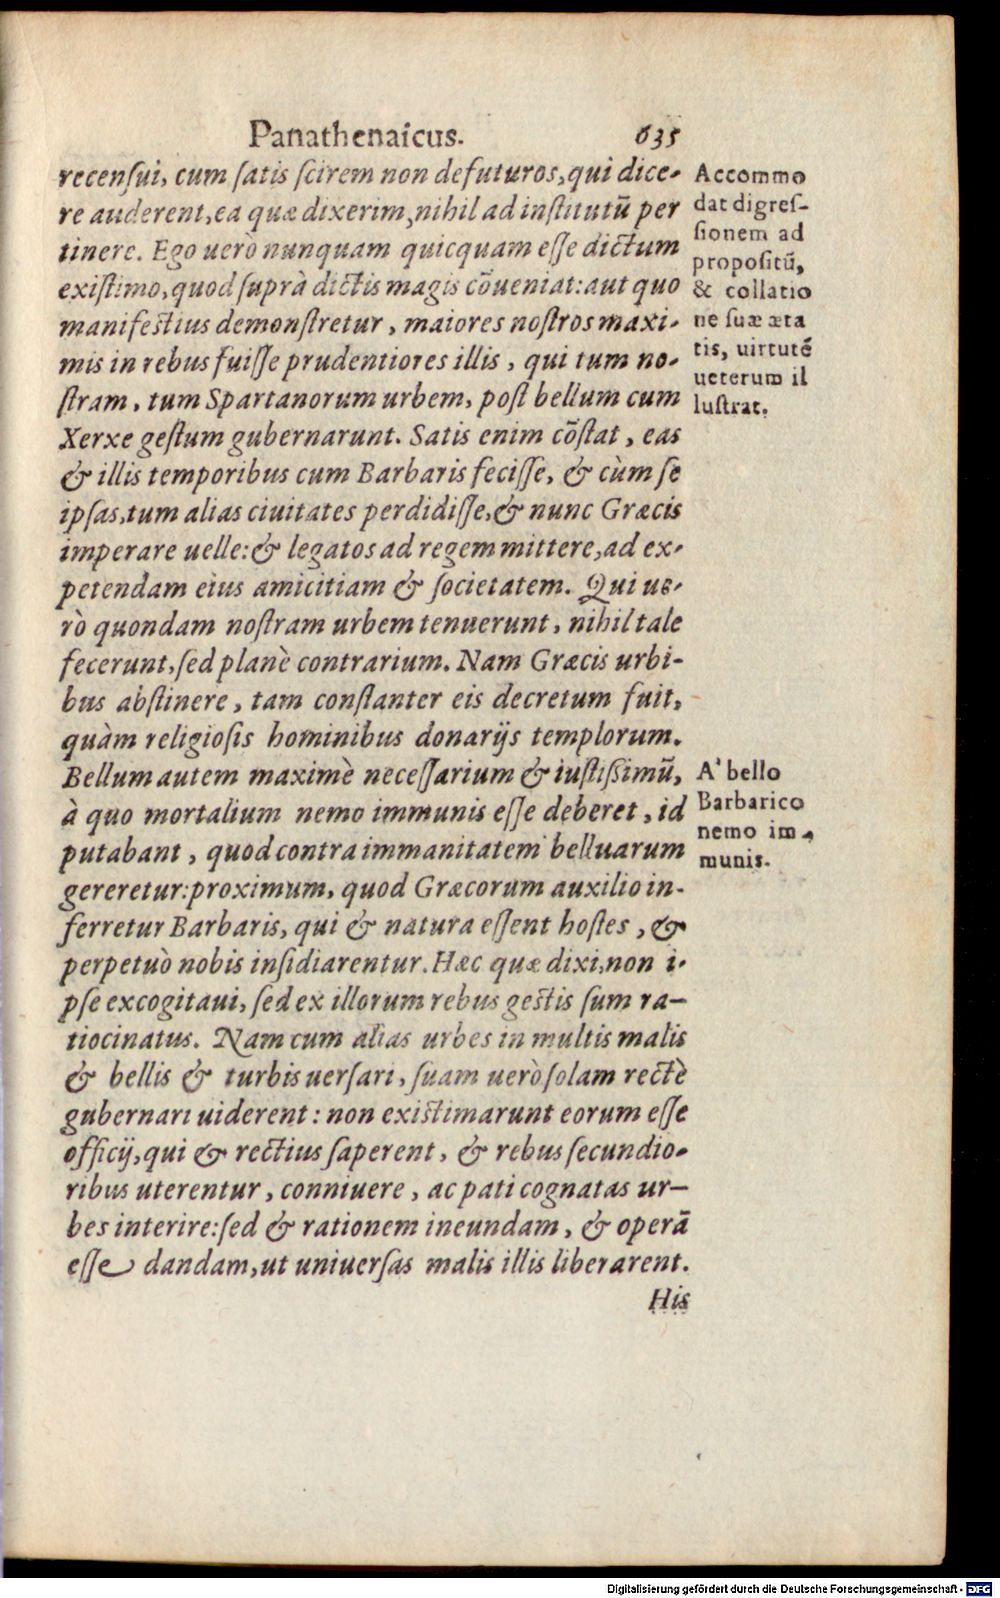 Panathenaicus. 635
recenſui, cum ſatis ſcirem non defuturos, qui dice-
re auderent, ea quæ dixerim, nihil ad inſtitutũ per
tinere. Ego uerò nunquam quicquam eſſe dictum
exiſtimo, quod ſuprà dictis magis cõueniat: aut quo
manifeſtius demonſtretur, maiores noſtros maxi-
mis in rebus fuiſſe prudentiores illis, qui tum no-
ſtram, tum Spartanorum urbem, poſt bellum cum
Xerxe geſtum gubernarunt. Satis enim cõſtat, eas
& illis temporibus cum Barbaris feciſſe, & cùm ſe
ipſas, tum alias ciuitates perdidiſſe, & nunc Græcis
imperare uelle: & legatos ad regem mittere, ad ex-
petendam eius amicitiam & ſocietatem. Qui ue-
rò quondam noſtram urbem tenuerunt, nihil tale
fecerunt, ſed planè contrarium. Nam Græcis urbi-
bus abſtinere, tam conſtanter eis decretum fuit,
quàm religioſis hominibus donarijs templorum.
Bellum autem maximè neceſſarium & iuſtiſsimũ,
à quo mortalium nemo immunis eſſe deberet, id
putabant, quod contra immanitatem belluarum
gereretur: proximum, quod Græcorum auxilio in-
ferretur Barbaris, qui & natura eſſent hoſtes, &
perpetuò nobis inſidiarentur. Hæc quæ dixi, non i-
pſe excogitaui, ſed ex illorum rebus geſtis ſum ra-
tiocinatus. Nam cum alias urbes in multis malis
& bellis & turbis uerſari, ſuam uerò ſolam rectè
gubernari uiderent: non exiſtimarunt eorum eſſe
officij, qui & rectius ſaperent, & rebus ſecundio-
ribus uterentur, conniuere, ac pati cognatas ur-
bes interire: ſed & rationem ineundam, & operã
eſſe dandam, ut uniuerſas malis illis liberarent.
His
Accommo
dat digreſ-
ſionem ad
propoſitũ,
& collatio
ne ſuæ æta
tis, uirtutẽ
ueterum il
luſtrat.
A' bello
Barbarico
nemo im-
munis.
Digitalisierung gefördert durch die Deutsche Forschungsgemeinschaft - DFG